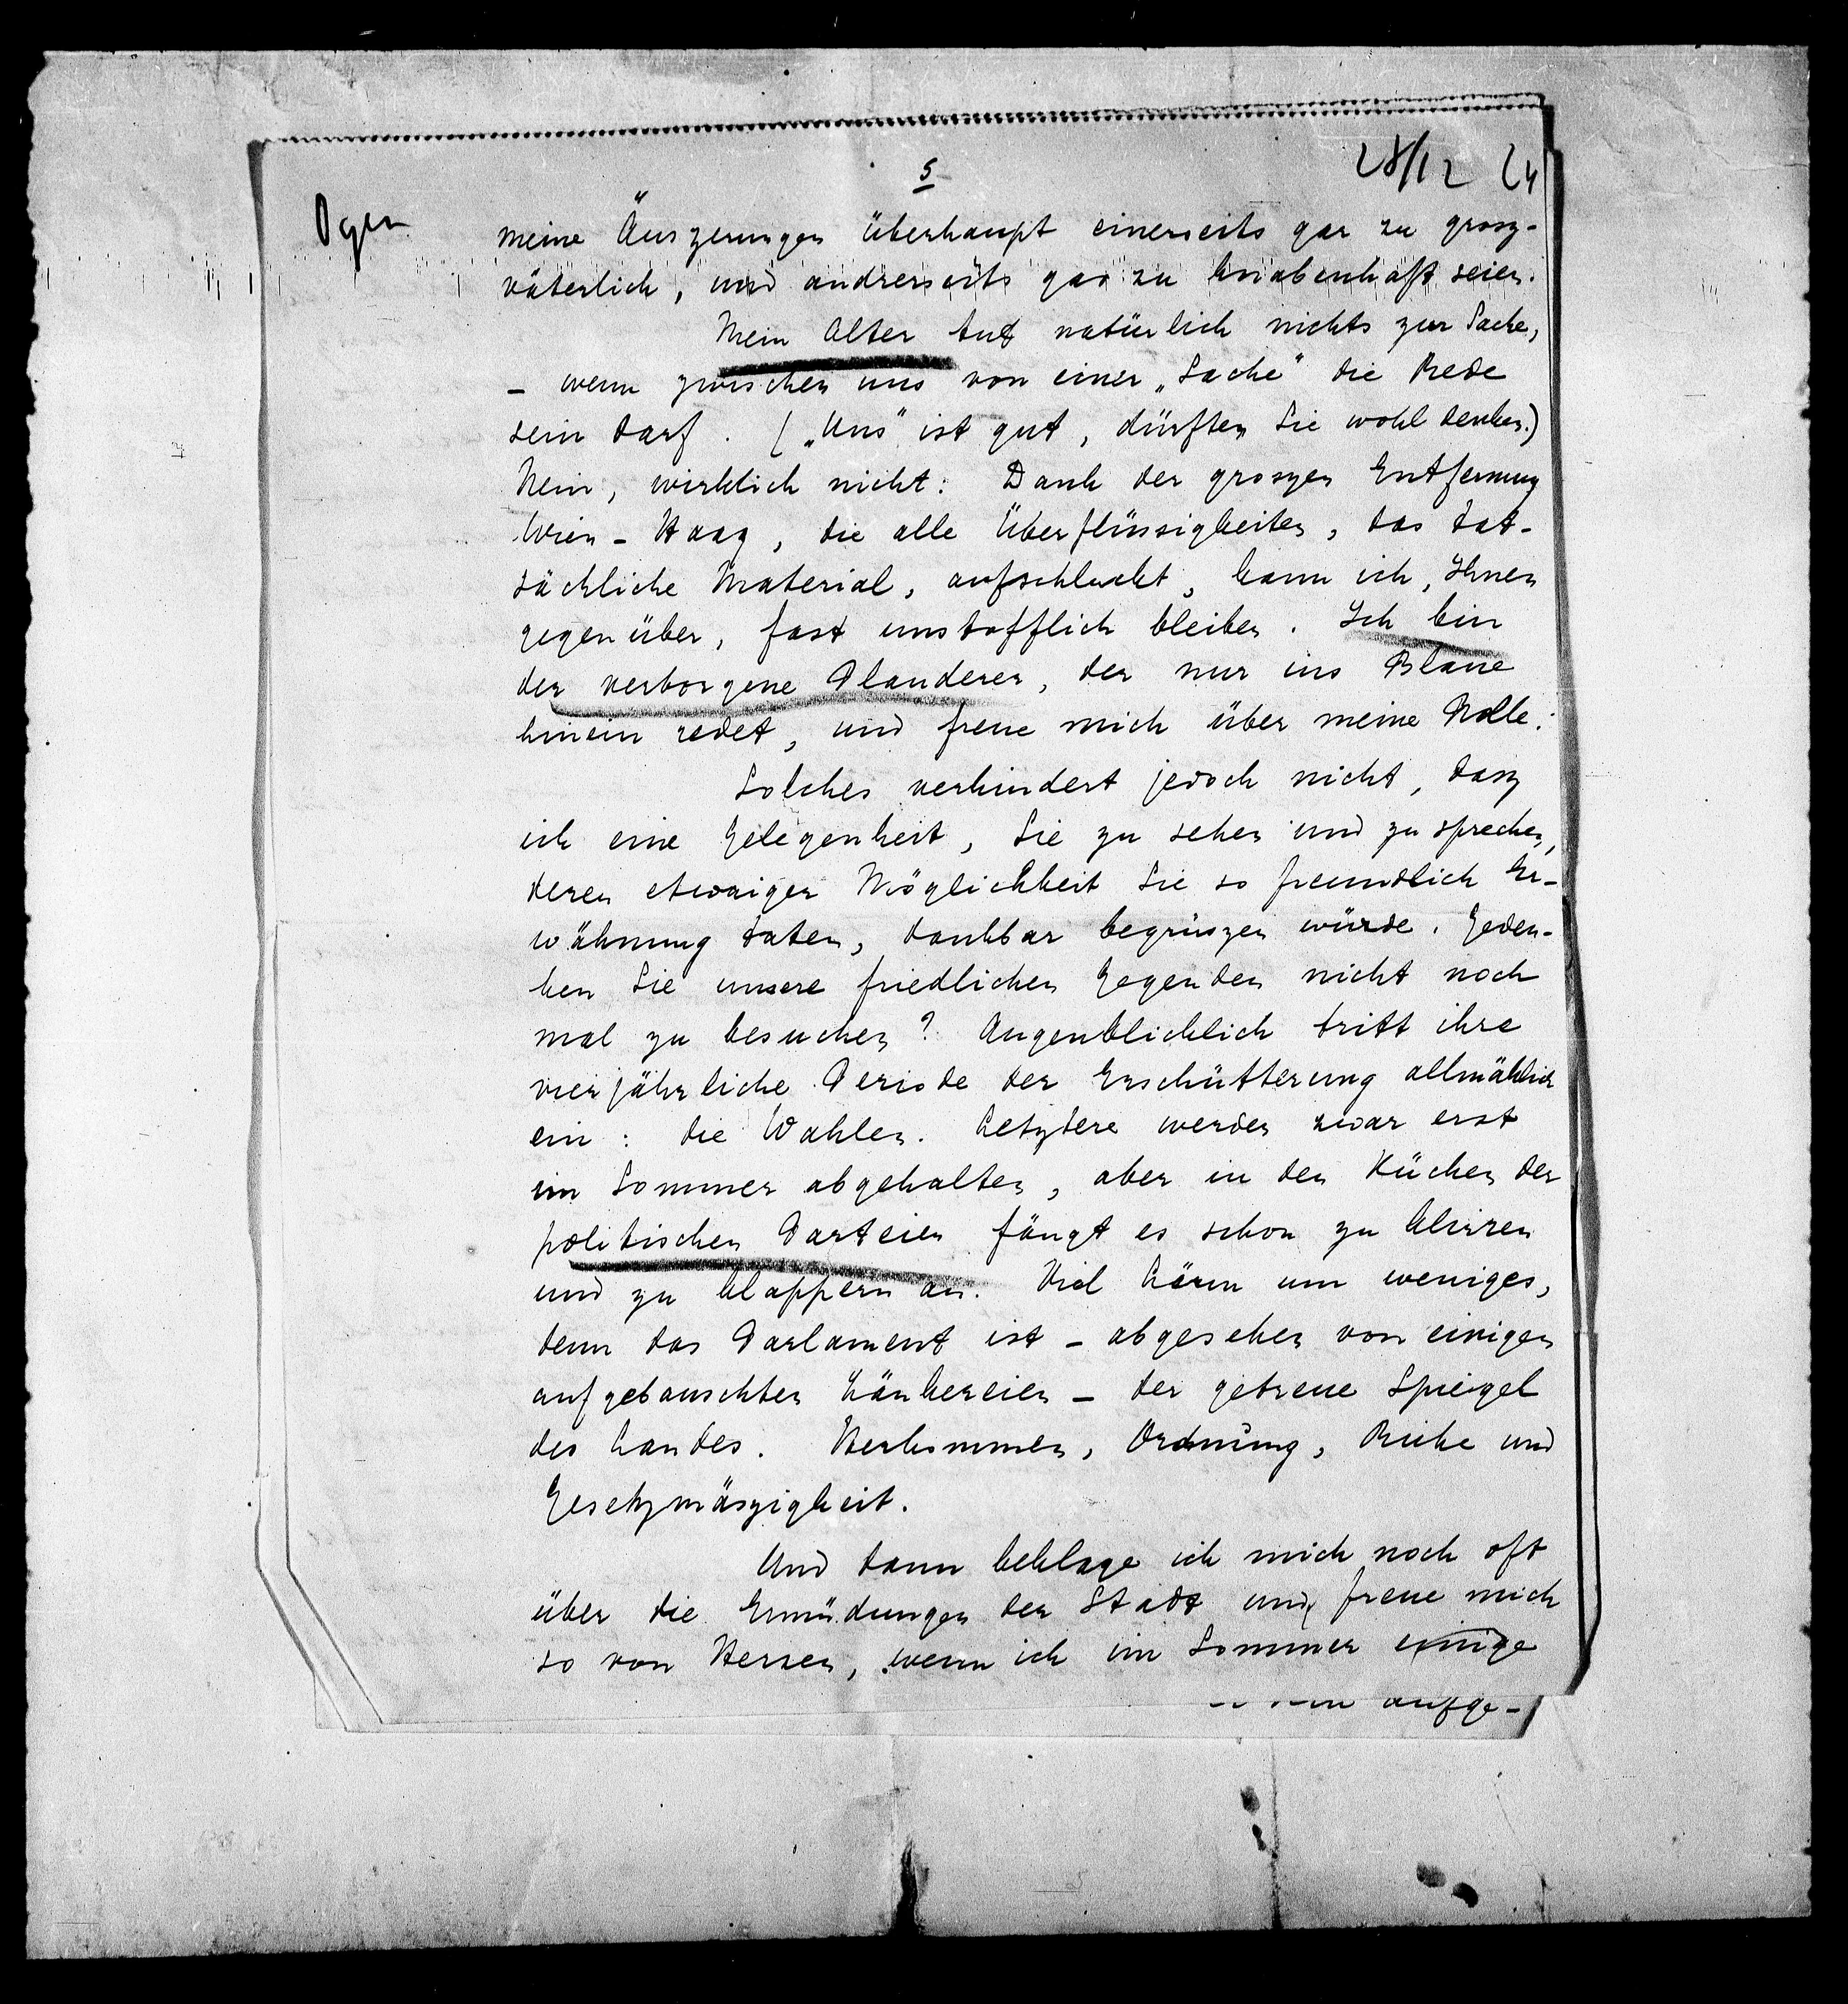 5
28/12 24
meine Äuszerungen überhaupt einerseits gar zu grosz-
väterlich, und andrerseits gar zu knabenhaft seien.
Mein Alter tut natürlich nichts zur Sache,
- wenn zwischen uns von einer „Sache" die Rede
sein darf. („Uns" ist gut, dürften Sie wohl denken.)
Nein, wirklich nicht: Dank der groszen Entfernung
Wien - Haag, die alle Überflüssigkeiten, das tat-
sächliche Material, aufschluckt, kann ich, Ihnen
gegenüber, fast unstofflich bleiben. Ich bin
der verborgene Plauderer, der nur ins Blaue
hinein redet, und freue mich über meine Rolle.
Solches verhindert jedoch nicht, dasz
ich eine Gelegenheit, Sie zu sehen und zu sprechen,
deren etwaiger Möglichkeit Sie so freundlich Er-
wähnung taten, dankbar begrüszen würde. Geden-
ken Sie unsere friedlichen Gegenden nicht noch
mal zu besuchen? Augenblicklich tritt ihre
vierjährliche Periode der Erschütterung allmählich
ein: die Wahlen. Letztere werden zwar erst
im Sommer abgehalten, aber in den Küchen der
politischen Parteien fängt es schon zu klirren
und zu klappern an. Viel Lärm um weniges,
denn das Parlament ist - abgesehen von einigen
aufgebauschten Zänkereien - der getreue Spiegel
des Landes. Herkommen, Ordnung, Ruhe und
Gesetzmäszigkeit.
Und dann beklage ich mich noch oft
über die Ermüdungen der Stadt und freue mich
so von Herzen, wenn ich im Sommer einige
aufge-